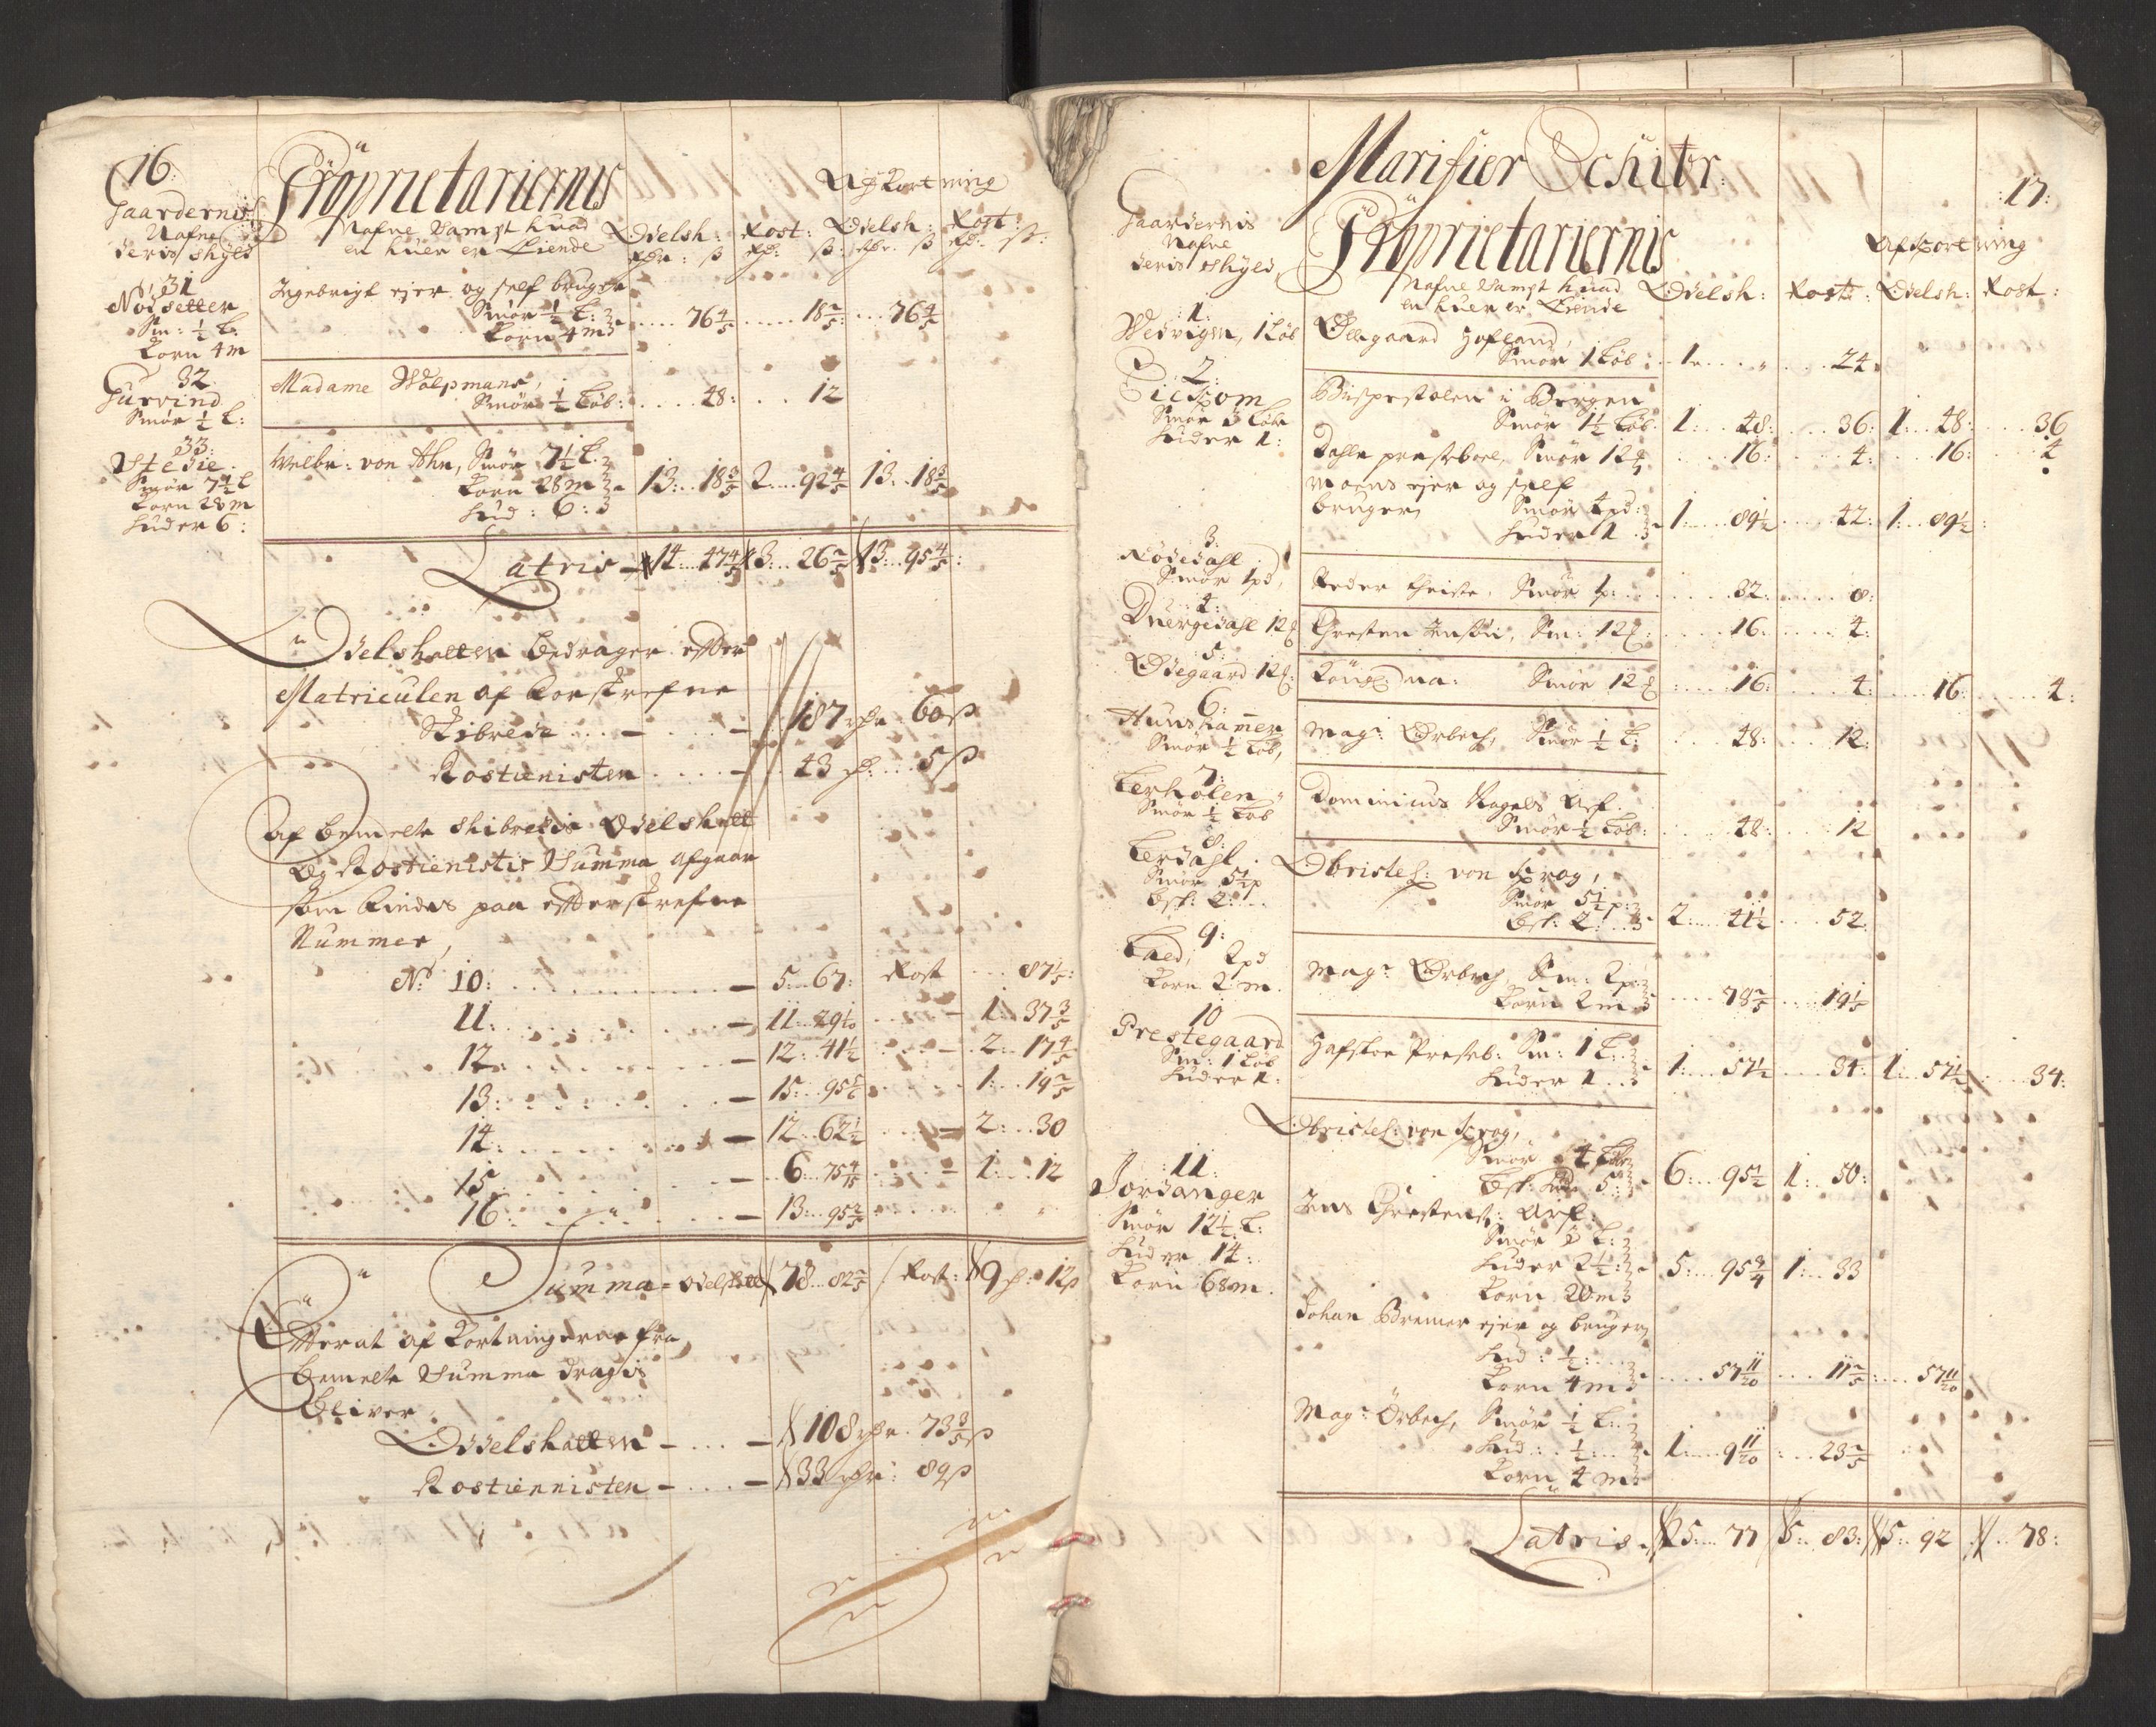 16:
Gaardernis
Nafne
deris skyld
Proprietariernis
Nafne sampt huad
en huer er Eiende
Afkortning
Odelsh: Rost: Odelsh: Rost:
rdr: ß rd: ß: rdr: ß rd: ß:
31
Nødsetter
Sm: ½ L:
Korn 4 m
Ingebrigt ejer og self bruger
Smør ½ L:
Korn 4 m
76 4/5 18 2/5 76 4/5
32
Smør ½ L:
Madame Wolpmans,
Smør ½ Løb: 48: 12
33:
Stedie
Smør 7½ L
Korn 28 m
Huder 6:
Welbr: von Ahn, Smør 7½ L.
Korn 28 m
Hud: 6:
13: 18 3/5 2 92 4/5 13 18 3/5
Latris 14 47 4/5 3: 26 2/5 13: 95 4/5:
Odelskatten bedrager efter
Matriculen af forskrefne
Skibrede 187 rdr 60 ß
Rostienisten 43 rd: 5 ß
Af bemelte skibredis Odelskatt
og Rostienistis Summa afgaar
som findes paa efterskrefne
Nummer,
No: 10: 5 67: Rost 87 1/5:
11: 11 29 1/10 1 37 3/5
12: 12: 41½ 2: 17 4/5
13: 15: 95 5/6 1: 19 2/5
14: 12 62½ 2: 30
15 6 75 4/15 1: 12
16: 13: 95 2/5
Summa Odelskatt 78 82 2/5 Rost: 9 rd: 12 ß
Efterat afkortningerne fra
bemelte Summa dragis
bliver
Odelskatten 108 rdr 73 3/5 ß
Rostiennisten 33 rdr: 89 ß
17:
Marifier Schibr:
Gaardernis
Nafne
deris skyld
Proprietariernis
Nafne sampt huad
en huer er Eiende
Afkortning
Odelsh: Rost: Odelsh: Rost:
1:
Wedvigen, 1 Løb
Ollegaard Hofland,
Smør 1 Løb: 1 " 24:
2:
Smør 3 Løb
Huder 1:
Bispestolen i Bergen
Smør 1½ Løb 1: 48: 36: 1: 48: 36
Dahle presteboel, Smør 12 16: 4: 16: 4
Moens ejer og self
bruger, Smør 4 pd:
Huder 1 1: 89½ 42: 1: 89½:
3:
Rødedahl
Smør 1 pd,
Peder Christe, Smør 1 p: 32: 8:
4:
Duergedahl 12
Chresten Jensøn, Sm: 12 16: 4:
5:
Ødegaard 12
Kong: Ma: Smør 12 16: 4: 16: 4:
6:
Hunshamer
Smør ½ Løb,
Magr: Ørbech, Smør ½ L: 48: 12:
7:
Lerholen
Smør ½ Løb
Dominicus Nagels Arf.
Smør ½ Løb: 48: 12
8:
Lerdahl
Smør 5½ p
Bsk: 2:
Obristel: von Krog,
Smør 5½ p:
Bsk: 2: 2: 41½ 52:
9:
Laed, 2 pd
Korn 2 m.
Magr Ørbech, Sm: 2 p:
Korn 2 m 78 2/5 19 1/5
10
Prestegaard
Sm: 1 Løb
Huder 1:
Hafsloe Presteb: Sm: 1 L:
Huder 1 1: 57½ 34: 1: 57½ 34:
11:
Jordanger
Smør 12½ L:
Huder 14:
Korn 68 m.
Obristel: von Krog,
Smør 4 Løb
Bsk: Hud 5: 6: 95½ 1: 50:
Jens Chrestens: Arf:
Smør 3 L:
Huder 2½:
Korn 20 m 5: 95 3/4 1: 33
Johan Bremer ejer og bruger,
Hud: ½:
Korn 4 m 57 11/20 11 2/5: 57 11/20
Magr: Ørbech, Smør ½ L:
Hud: ½:
Korn 4 m 1: 9 11/20: 23 2/5
Latris 25: 77 5: 83: 5: 92 78: